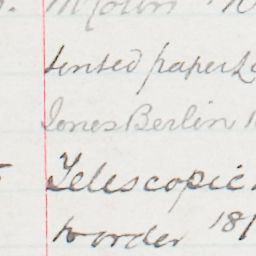 tinted paper
Jones Berlin
Telescopic
to order 181